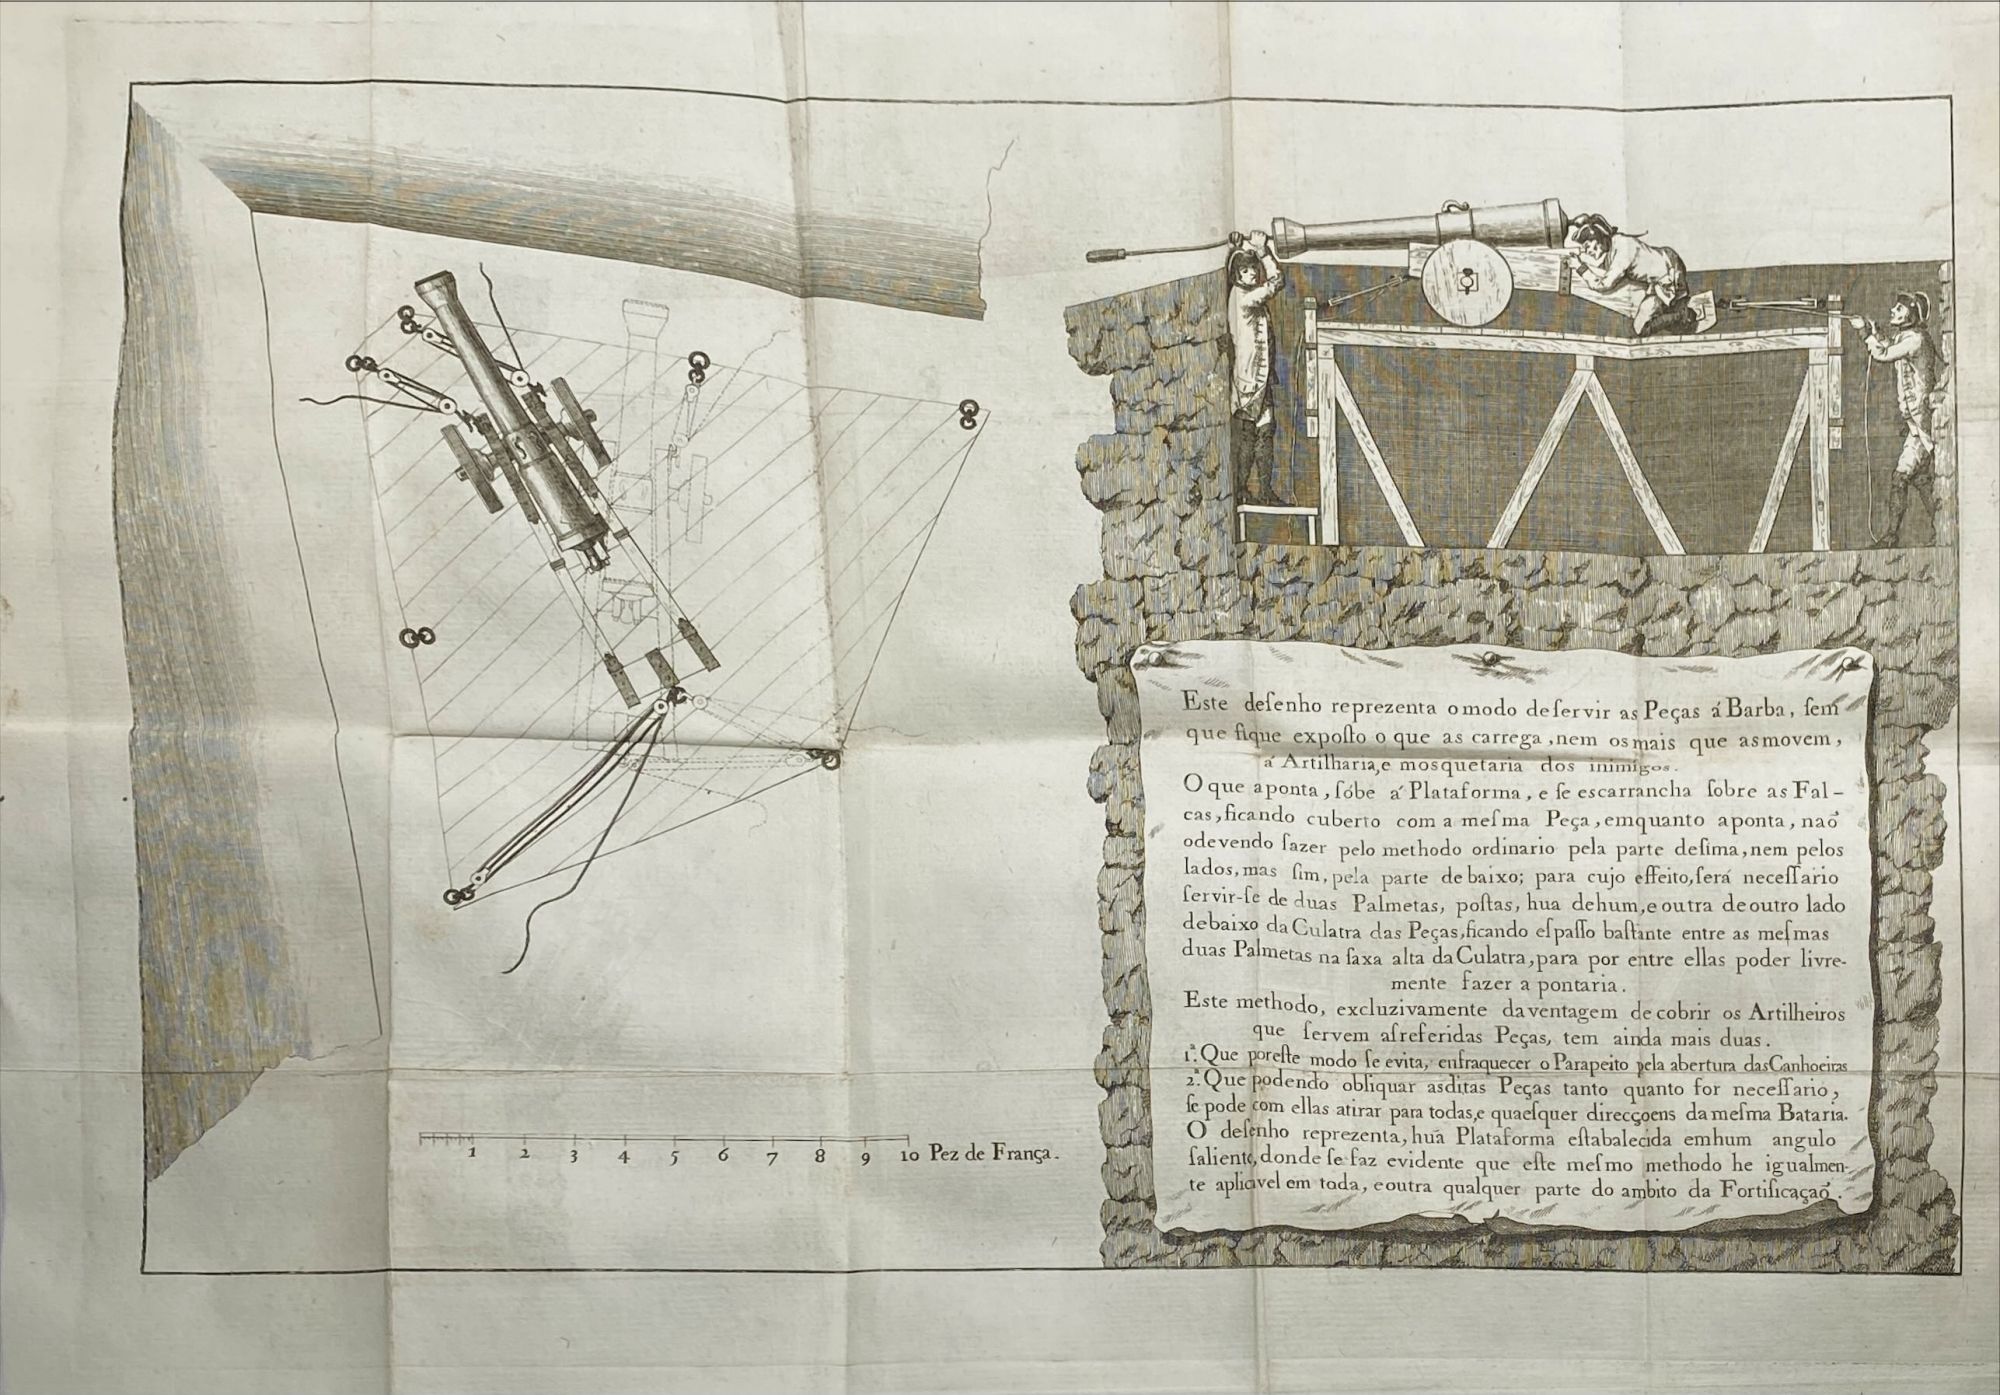 Este deſenho reprezenta o modo de ſervir as Peças á Barba, ſem
que fique expoſto o que as carrega, nem os mais que as movem,
á Artilharia, e mosquetaria dos inimigos.
O que aponta, ſóbe á Plataforma, e ſe escarrancha ſobre as Fal-
cas, ficando cuberto com a meſma Peça, emquanto aponta, naõ
o devendo fazer pelo methodo ordinario pela parte deſima, nem pelos
lados, mas ſim, pela parte de baixo; para cujo effeito, ſerá neceſſario
ſervir-ſe de duas Palmetas, poſtas, hua de hum, e outra de outro lado
debaixo da Culatra das Peças, ficando eſpaſſo baſtante entre as meſmas
duas Palmetas na faxa alta da Culatra, para por entre ellas poder livre-
mente fazer a pontaria.
Este methodo, excluzivamente da ventagem de cobrir os Artilheiros
que ſervem as referidas Peças, tem ainda mais duas.
1.ª Que por eſte modo ſe evita, enfraquecer o Parapeito pela abertura das Canhoeiras
2.ª Que podendo obliquar as ditas Peças tanto quanto for neceſſario,
ſe pode com ellas atirar para todas, e quaeſquer direcçoens da meſma Bataria.
O deſenho reprezenta, huã Plataforma eſtabalecida em hum angulo
ſaliente, donde ſe faz evidente que eſte meſmo methodo he igualmen-
te aplicavel em toda, e outra qualquer parte do ambito da Fortificaçaõ.
1 2 3 4 5 6 7 8 9 10 Pez de França.